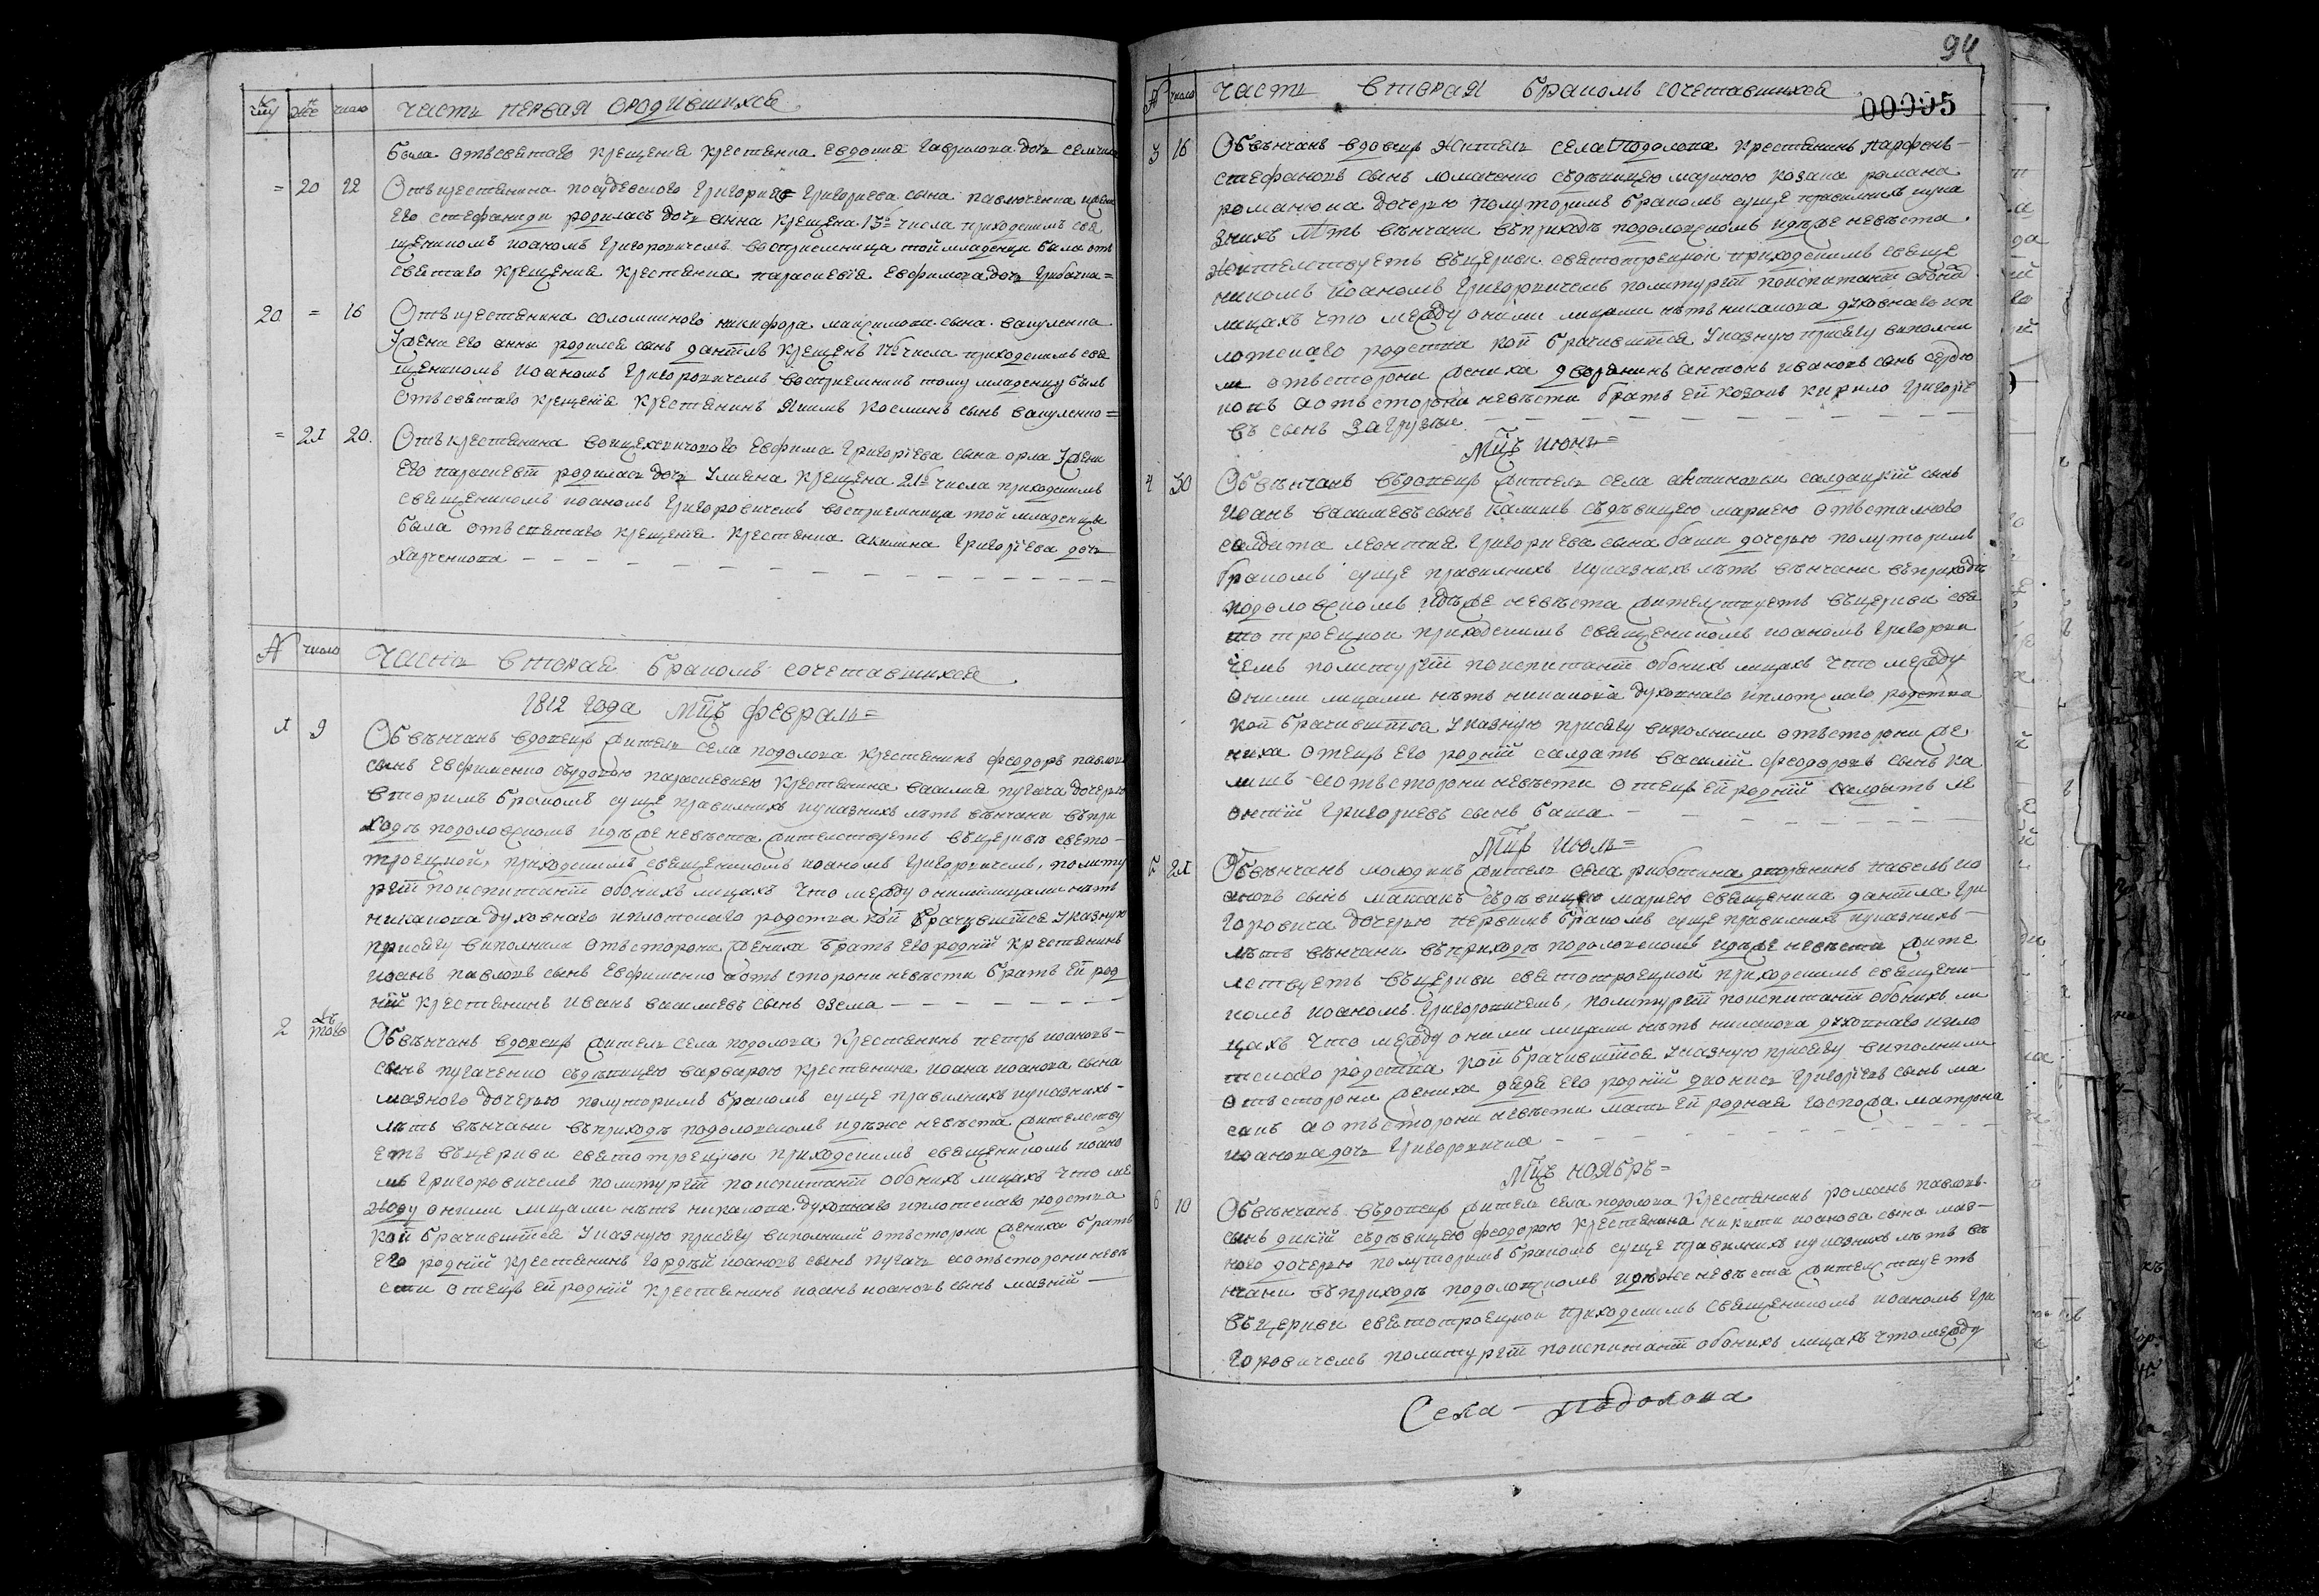 часть первая о родившихся
была отъ светаго крещения крестянка евдокия Гаврилова дочь
= 20 12 Отъ крестянина Григория Григориева сына павлюченка жени
его стефаниди родиласъ дочь анна крещена 13го числа приходскимъ све
щеникомъ иоаномъ григоровичемъ восприемница той младенци била отъ
светаго крещения крестянка параскевия евфимова дочь грибачка =
20 = 16 Отъ крестянина никифора максимова сына вакуленка
жени его анни родился сынъ данiилъ крещенъ числа приходскимъ све
щеникомъ иоаномъ Григоровичемъ восприемникъ тому младенцу былъ
отъ светаго крещения крестянинъ якимъ косминъ сынъ вакуленко =
= 21 20. Отъ крестянина евфима григориева сына орла жени
его параскевiи родиласъ дочь улияна крещена 21го числа приходскимъ
свещеникомъ иоаномъ григоровичемъ восприемница той младенци
была отъ светаго крещения крестянка акилина григориева дочь
харченкова
№ число Часть вторая бракомъ сочетавшихся
1812 года мцъ февраль =
1 9 Обвѣнчанъ вдовецъ жителъ села подолова крестянинъ феодоръ павловъ
сынъ евфименко съ вдовою параскевиею крестянина василия пугача дочерю
вторимъ бракомъ суще правилнихъ и указнихъ лѣтъ вѣнчани въ при
ходѣ подоловскомъ идѣже невѣста жителствуетъ въ церквѣ свето-
троецкой, приходскимъ свещеникомъ иоаномъ григоровичемъ, по литу
ргiи по испитанiи обоихъ лицахъ что между оними лицами нѣтъ
никакова духовнаго и плотскаго родства кои брачившiися указную
присягу виполнили отъ сторони жениха братъ его роднiй крестянинъ
иоанъ павловъ сынъ евфименко а отъ сторони невѣсти братъ ей род
нiй крестянинъ иванъ василиевъ сынъ озема
2 тогож Обвѣнчанъ вдовецъ жителъ села подолова крестянинъ петръ иоановъ-
сынъ пугаченко съ дѣвицею варварою крестянина иоана иоанова сына
мазного дочерью полуторимъ бракомъ суще правилнихъ и указнихъ-
лѣтъ вѣнчани въ приходѣ подоловскомъ идѣже невѣста жителству
етъ въ церкви светотроецкой приходскимъ свещеникомъ иоано
мъ григоровичемъ по литургiи по испитанiи обоихъ лицахъ что ме
жду оними лицами нѣтъ никакова духовнаго и плотскаго родства
кои брачившiися указную присягу виполнили отъ сторони жениха братъ
его роднiй крестянинъ гордѣй иоановъ сынъ пугачъ а отъ сторони невѣ
сти отецъ ей роднiй крестянинъ иоанъ иоановъ сынъ мазнiй
94
00095
№ число Часть вторая бракомъ сочетавшихся
3 16 Обвѣнчанъ вдовецъ жителъ села подолова крестянинъ парфенъ-
стефановъ сынъ ломаченко съ дѣвицею мариною козака романа
романюка дочерю полуторимъ бракомъ суще правилнихъ и ука
знихъ лѣтъ вѣнчани въ приходѣ подоловскомъ идѣже невѣста
жителствуетъ въ церкви светотроецкой приходскимъ свеще
никомъ иоаномъ григоровичемъ по литургiи по испитанiи обоихъ
лицахъ что между оними лицами нѣтъ никакова духовнаго и п
лотскаго родства кои брачившiися указную присягу виполни
ли отъ сторони жениха дворянинъ антонъ ивановъ сынъ
а отъ сторони невѣсти братъ ей козакъ кирило григорiе
въ сынъ
Мцъ июнь =
4 30 Обвѣнчанъ вдовецъ жителъ села салдацкiй сынъ
иоанъ василиевъ сынъ калишъ съ дѣвицею мариею отъставного
салдата леонтия григориева сына баши дочерью полуторимъ
бракомъ суще правилнихъ и указнихъ лѣтъ вѣнчани въ приходѣ
подоловскомъ идѣже невѣста жителствуетъ въ церкви све
то троецкои приходскимъ свещеникомъ иоаномъ григорови
чемъ по литургiи по испитанiи обоихъ лицахъ что между
оними лицами нѣтъ никакова духовнаго и плотскаго родства
кои брачившiися указную присягу виполнили отъ сторони же
ниха отецъ его роднiй салдатъ василiй феодоровъ сынъ ка
лишъ а отъ сторони невѣсти отецъ ей роднiй салдатъ ле
онтiй григориевъ сынъ баша
Мцъ июль =
5 21 Обвѣнчанъ молодикъ жителъ села риботина дворянинъ павелъ ио
ановъ сынъ съ дѣвицею мариею свещеника данiила гри
горовича дочерью первимъ бракомъ суще правилнихъ и указнихъ-
лѣтъ вѣнчани въ приходѣ подоловскомъ идѣже невѣста жите
лствуетъ въ церкви светотроецкой приходскимъ свещени-
комъ иоаномъ григоровичемъ, по литургiи по испитанiи обоихъ ли
цахъ что между оними лицами нѣтъ никакова духовнаго и пло
тскаго родства кои брачившiися указную присягу виполнили
отъ сторони жениха дядя его роднiй дионисъ григорiевъ сынъ
а отъ сторони невѣсти мать ей родная госпожа матрона
иоанова дочь григоровичка
Мцъ ноябрь =
6 10 Обвѣнчанъ вдовецъ жителъ села подолова крестянинъ романъ павловъ-
сынъ дикiй съ дѣвицею феодорою крестянина никити иоанова сына маз-
ного дочерью полуторимъ бракомъ суще правилнихъ и указнихъ лѣтъ вѣ
нчани въ приходѣ подоловскомъ идѣже невѣста жителствуетъ
въ церкви светотроецкои приходскимъ свещеникомъ иоаномъ гри
горовичемъ по литургiи по испитанiи обоихъ лицахъ что между
Села Подолова